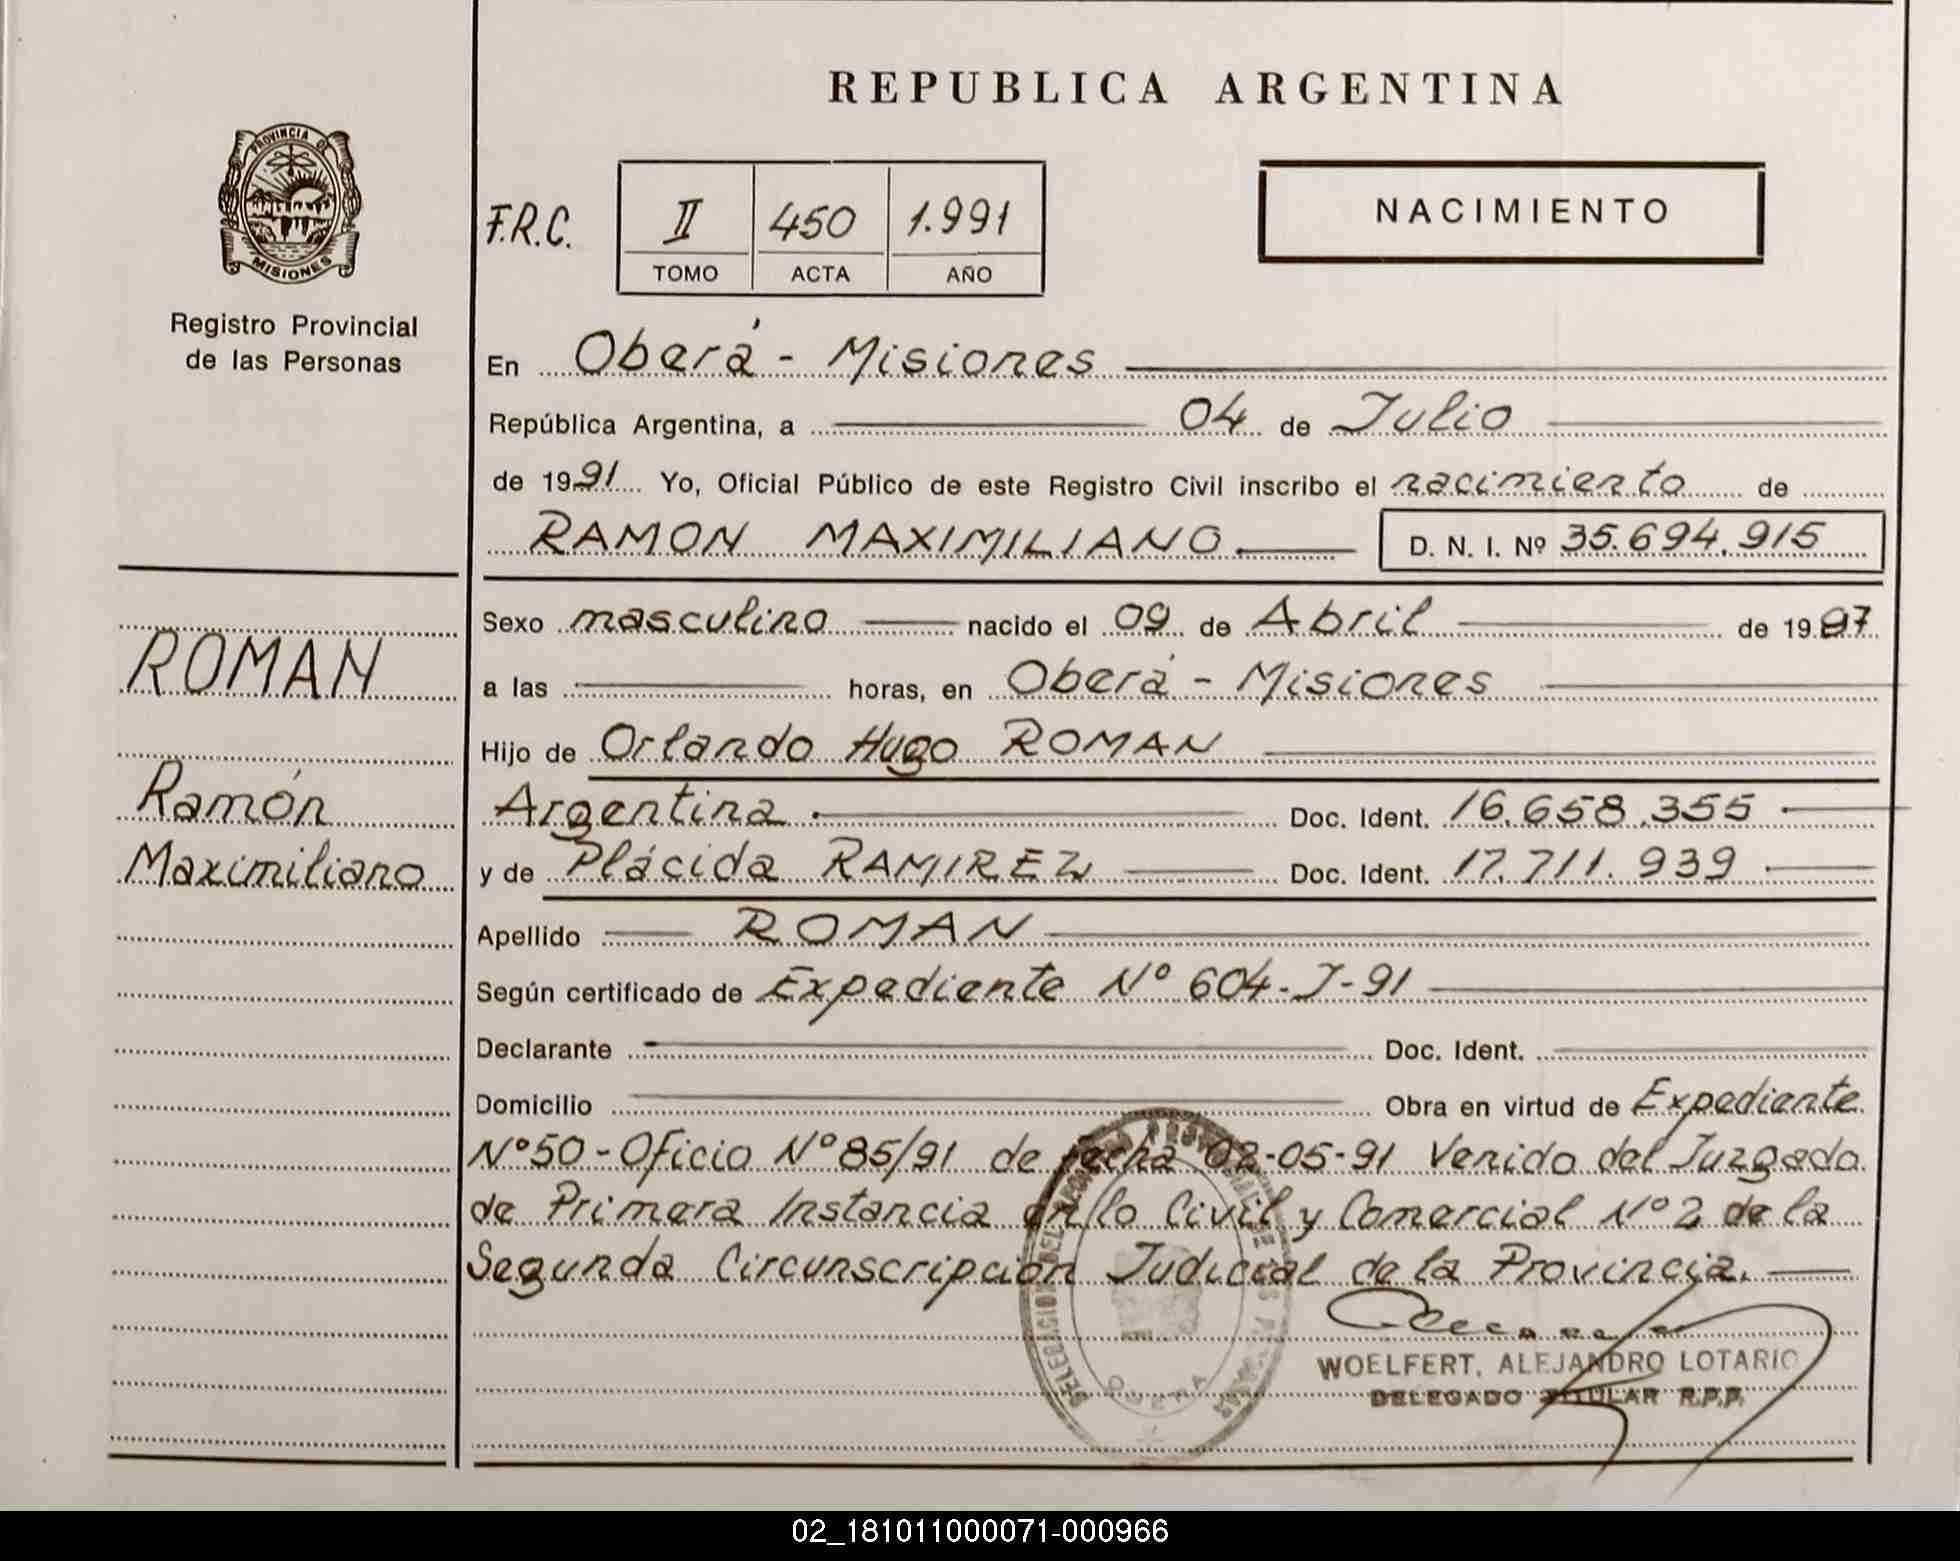 REPUBLICA ARGENTINA
PROVINCIA DE
MISIONES
Registro Provincial
de las Personas
F.R.C.
II 450 1.991
TOMO ACTA AÑO
NACIMIENTO
En Oberá - Misiones
República Argentina, a 04 de Julio
de 1991 Yo, Oficial Público de este Registro Civil inscribo el nacimiento de
RAMON MAXIMILIANO D. N. I. Nº 35.694.915
ROMAN
Ramón
Maximiliano
Sexo masculino nacido el 09 de Abril de 19
a las horas, en Oberá - Misiones
Hijo de Orlando Hugo ROMAN
Argentina Doc. Ident. 16.658.355
y de Plácida RAMIREZ Doc. Ident. 17.711.939
Apellido ROMAN
Según certificado de Expediente Nº 604-J-91
Declarante Doc. Ident.
Domicilio Obra en virtud de Expediente
Nº50-Oficio Nº85/91 de fecha 02-05-91 Venido del Juzgado
de Primera Instancia en lo Civil y Comercial Nº2 de la
Segunda Circunscripción Judicial de la Provincia.
OBERA
WOELFERT, ALEJANDRO LOTARIO
DELEGADO TITULAR R.P.P.
02_181011000071-000966